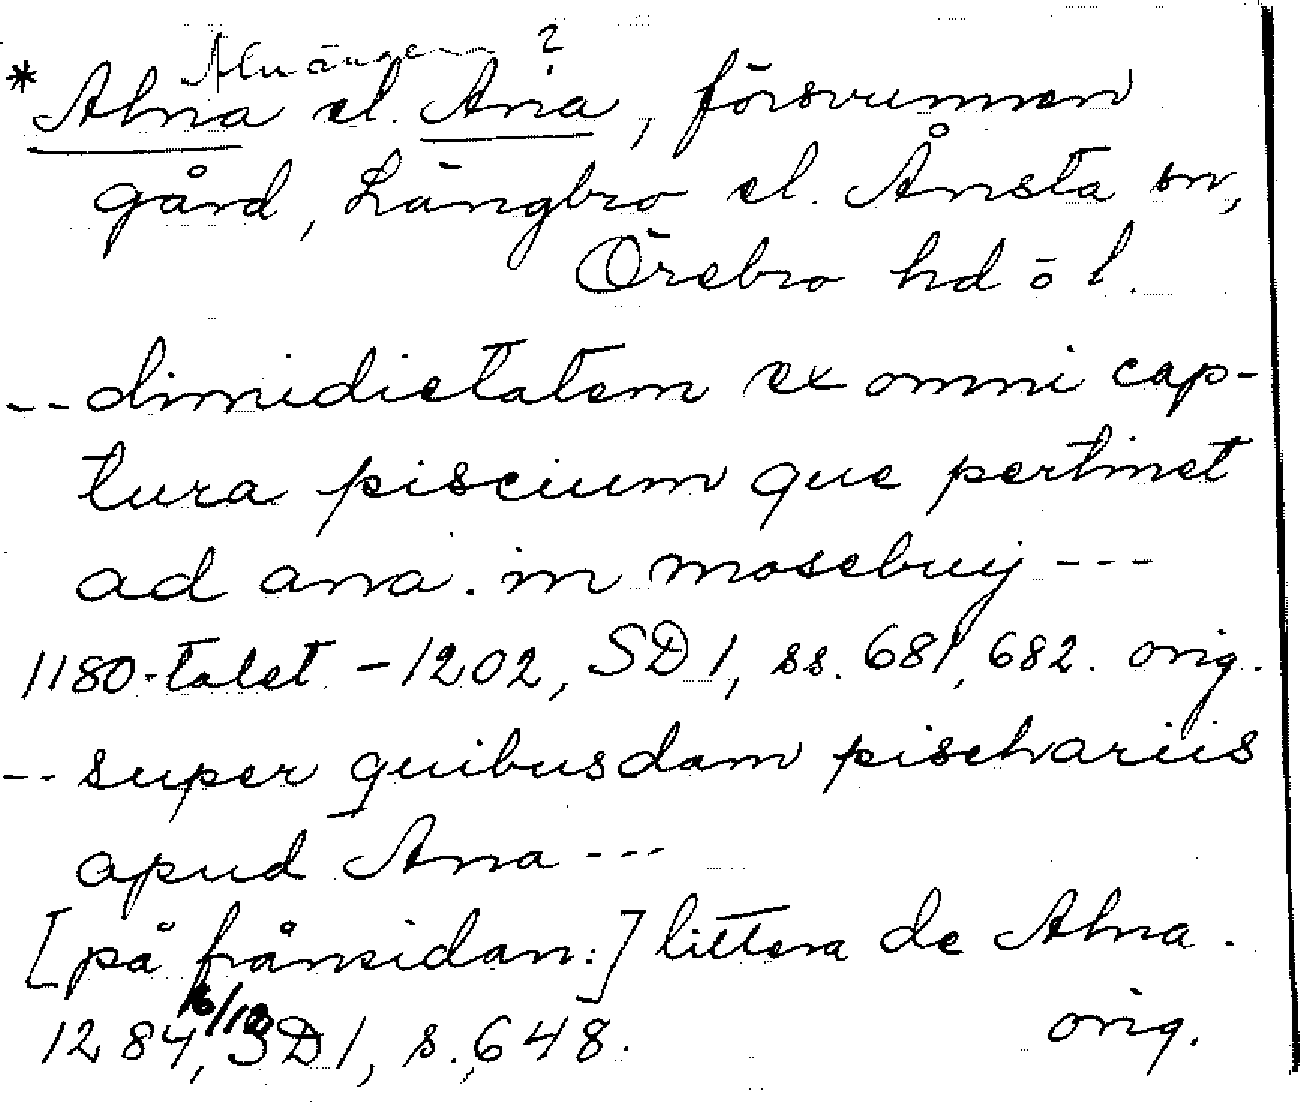 Alnängen ?
* Alna el. Ana, försvunnen
gård, Längbro el. Ånsta sn,
Örebro hd ö l.
-- dimidietatem ex omni cap-
tura piscium que pertinet
ad ana. in mosebuij ---
1180-talet - 1202, SD 1, ss. 681, 682. orig.
-- super quibusdam pischariis
apud Ana ---
[på frånsidan:] littera de Alna.
1284, 16/10 SD 1, s. 648. orig.